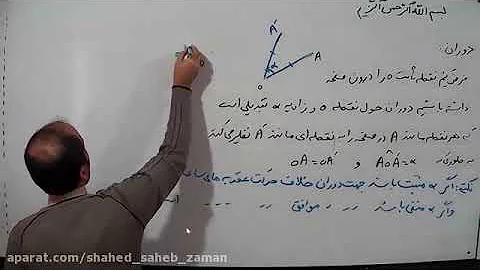 بسم الله الرحمن الرحیم
دوران:
A'
A
α
O
O
فرض کنیم نقطه ثابت O را درون صفحه
داشته باشیم دوران حول نقطه O و زاویه α تبدیلی است
که هر نقطه مانند A در صفحه را به نقطه‌ای مانند A' نظیر می‌کند
به طوری که AÔA'=α و OA=OA'
نکته: اگر α مثبت باشد جهت دوران خلاف حرکت عقربه های
و اگر α منفی باشد موافق
aparat.com/shahed_saheb_zaman